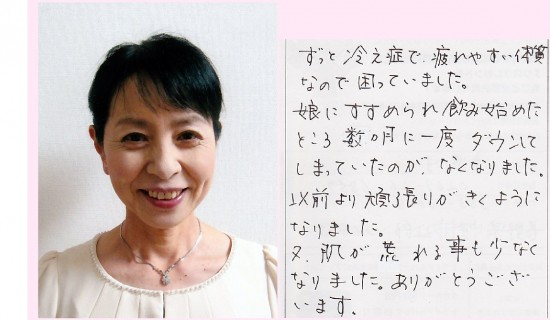 ずっと冷え症で、疲れやすい体質
なので困っていました。
娘にすすめられ飲み始めた
ところ数か月に一度ダウンして
しまっていたのが、なくなりました。
以前より頑張りがきくように
なりました。
又、肌が荒れる事も少なく
なりました。ありがとうござ
います。